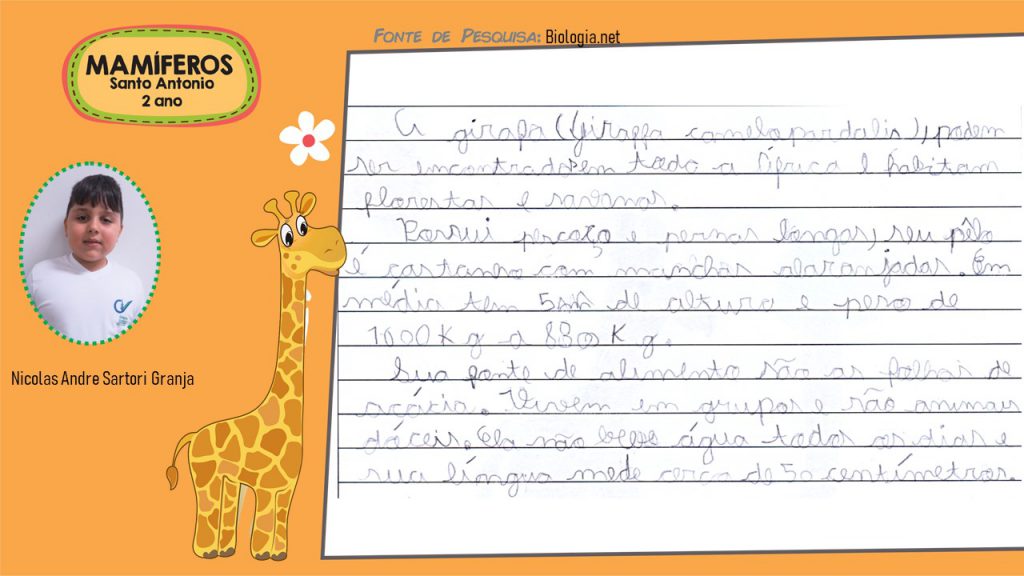 FONTE DE PESQUISA: Biologia.net
MAMÍFEROS
Santo Antonio
2 ano
Nicolas Andre Sartori Granja
A girafa (Giraffa camelopardalis), podem
ser encontradas em todo a África e habitam
florestas e savanas.
Possui pescoço e pernas longas, seu pêlo
é castanho com manchas alaranjadas. Em
média tem 5m de altura e peso de
1000 Kg a 880 Kg.
Sua fonte de alimento são as folhas de
acácia. Vivem em grupos e são animais
dóceis. Ela não bebe água todos os dias e
sua língua mede cerca de 50 centímetros.